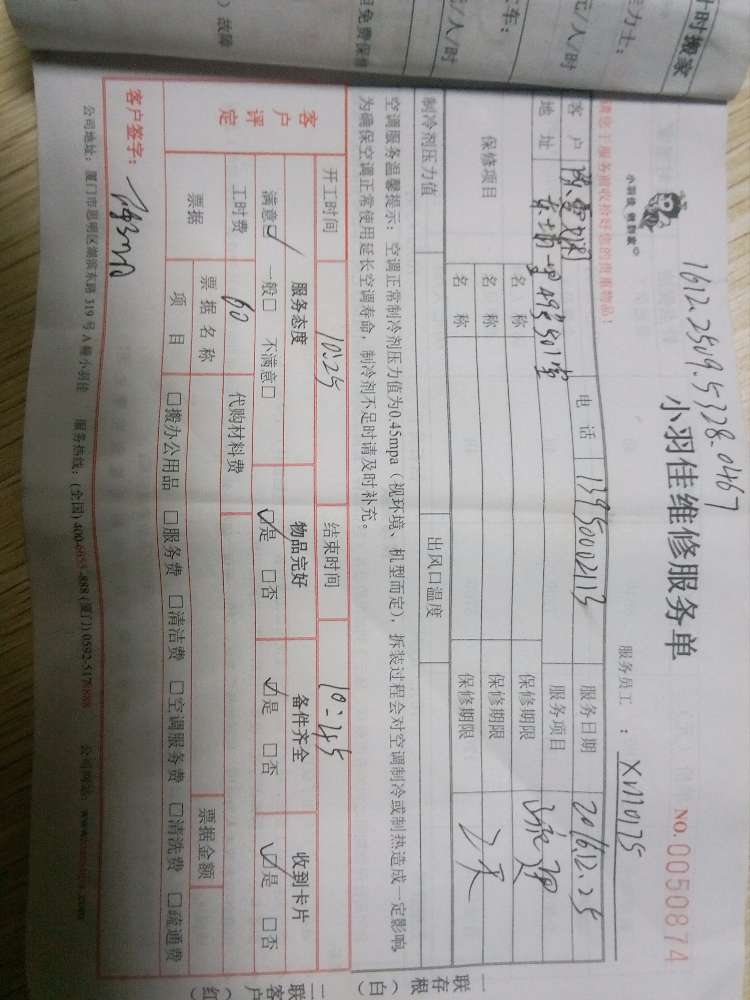 计时搬家
元/人/时
工力士:
元/人/时
车:
但免费保修
)故障
1612.2509.5328.0467
小羽佳 做到家
小羽佳维修服务单
NO.0050874
服务员工 : XM1075
请您于服务前收拾好您的贵重物品!
客户 电话 13950002113 服务日期 2016.12.25
地址 49号501室 服务项目
保修项目 名称 保修期限
名称 保修期限
名称 保修期限
制冷剂压力值 出风口温度
空调服务温馨提示:空调正常制冷剂压力值为0.45mpa(视环境、机型而定),拆装过程会对空调制冷或制热造成一定影响,
为确保空调正常使用延长空调寿命,制冷剂不足时请及时补充。
开工时间 10:25 结束时间 10:45
客户评定 服务态度 物品完好 备件齐全 收到卡片
满意☑ 一般□ 不满意□ ☑是 □否 ☑是 □否 ☑是 □否
工时费 60 代购材料费
票据 票据名称 票据金额
项目 □搬办公用品 □服务费 □清洁费 □空调服务费 □清洗费 □疏通费
客户签字:
公司地址:厦门市思明区湖滨东路319号A幢小羽佳 服务热线:(全国)400-6655-888 (厦门)0592-5178888 公司网站:
一联存根(白)
二联客户(红)